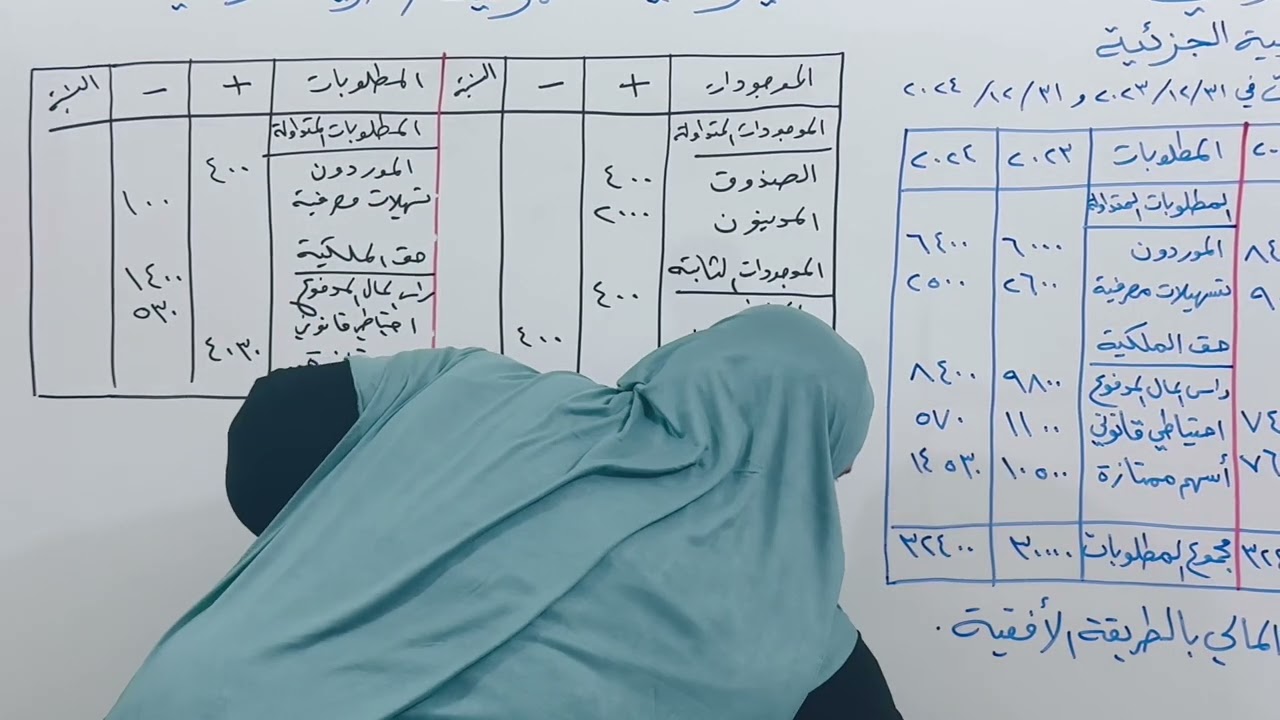 ية الجزئية
في ٢٠٢٣/١٢/٣١ و ٢٠٢٤/١٢/٣١
المطلوبات ٢٠٢٣ ٢٠٢٤
المطلوبات المتداولة
الموردون ٦٠٠٠ ٦٤٠٠
تسهيلات مصرفية ٢٦٠٠ ٢٥٠٠
حق الملكية
راس المال المدفوع ٩٨٠٠ ٨٤٠٠
احتياطي قانوني ١١٠٠ ٥٧٠
أسهم ممتازة ١٠٥٠٠ ١٤٥٣٠
مجموع المطلوبات ٣٠٠٠٠ ٣٢٤٠٠
المالي بالطريقة الأفقية .
+ -
الموجودات المتداولة
الصندوق ٤٠٠
المدينون ٢٠٠٠
الموجودات الثابته
٤٠٠
٤٠٠
المطلوبات + -
المطلوبات المتداولة
الموردون ٤٠٠
تسهيلات مصرفية ١٠٠
حق الملكية
راس المال المدفوع ١٤٠٠
احتياطي قانوني ٥٣٠
٤٠٣٠